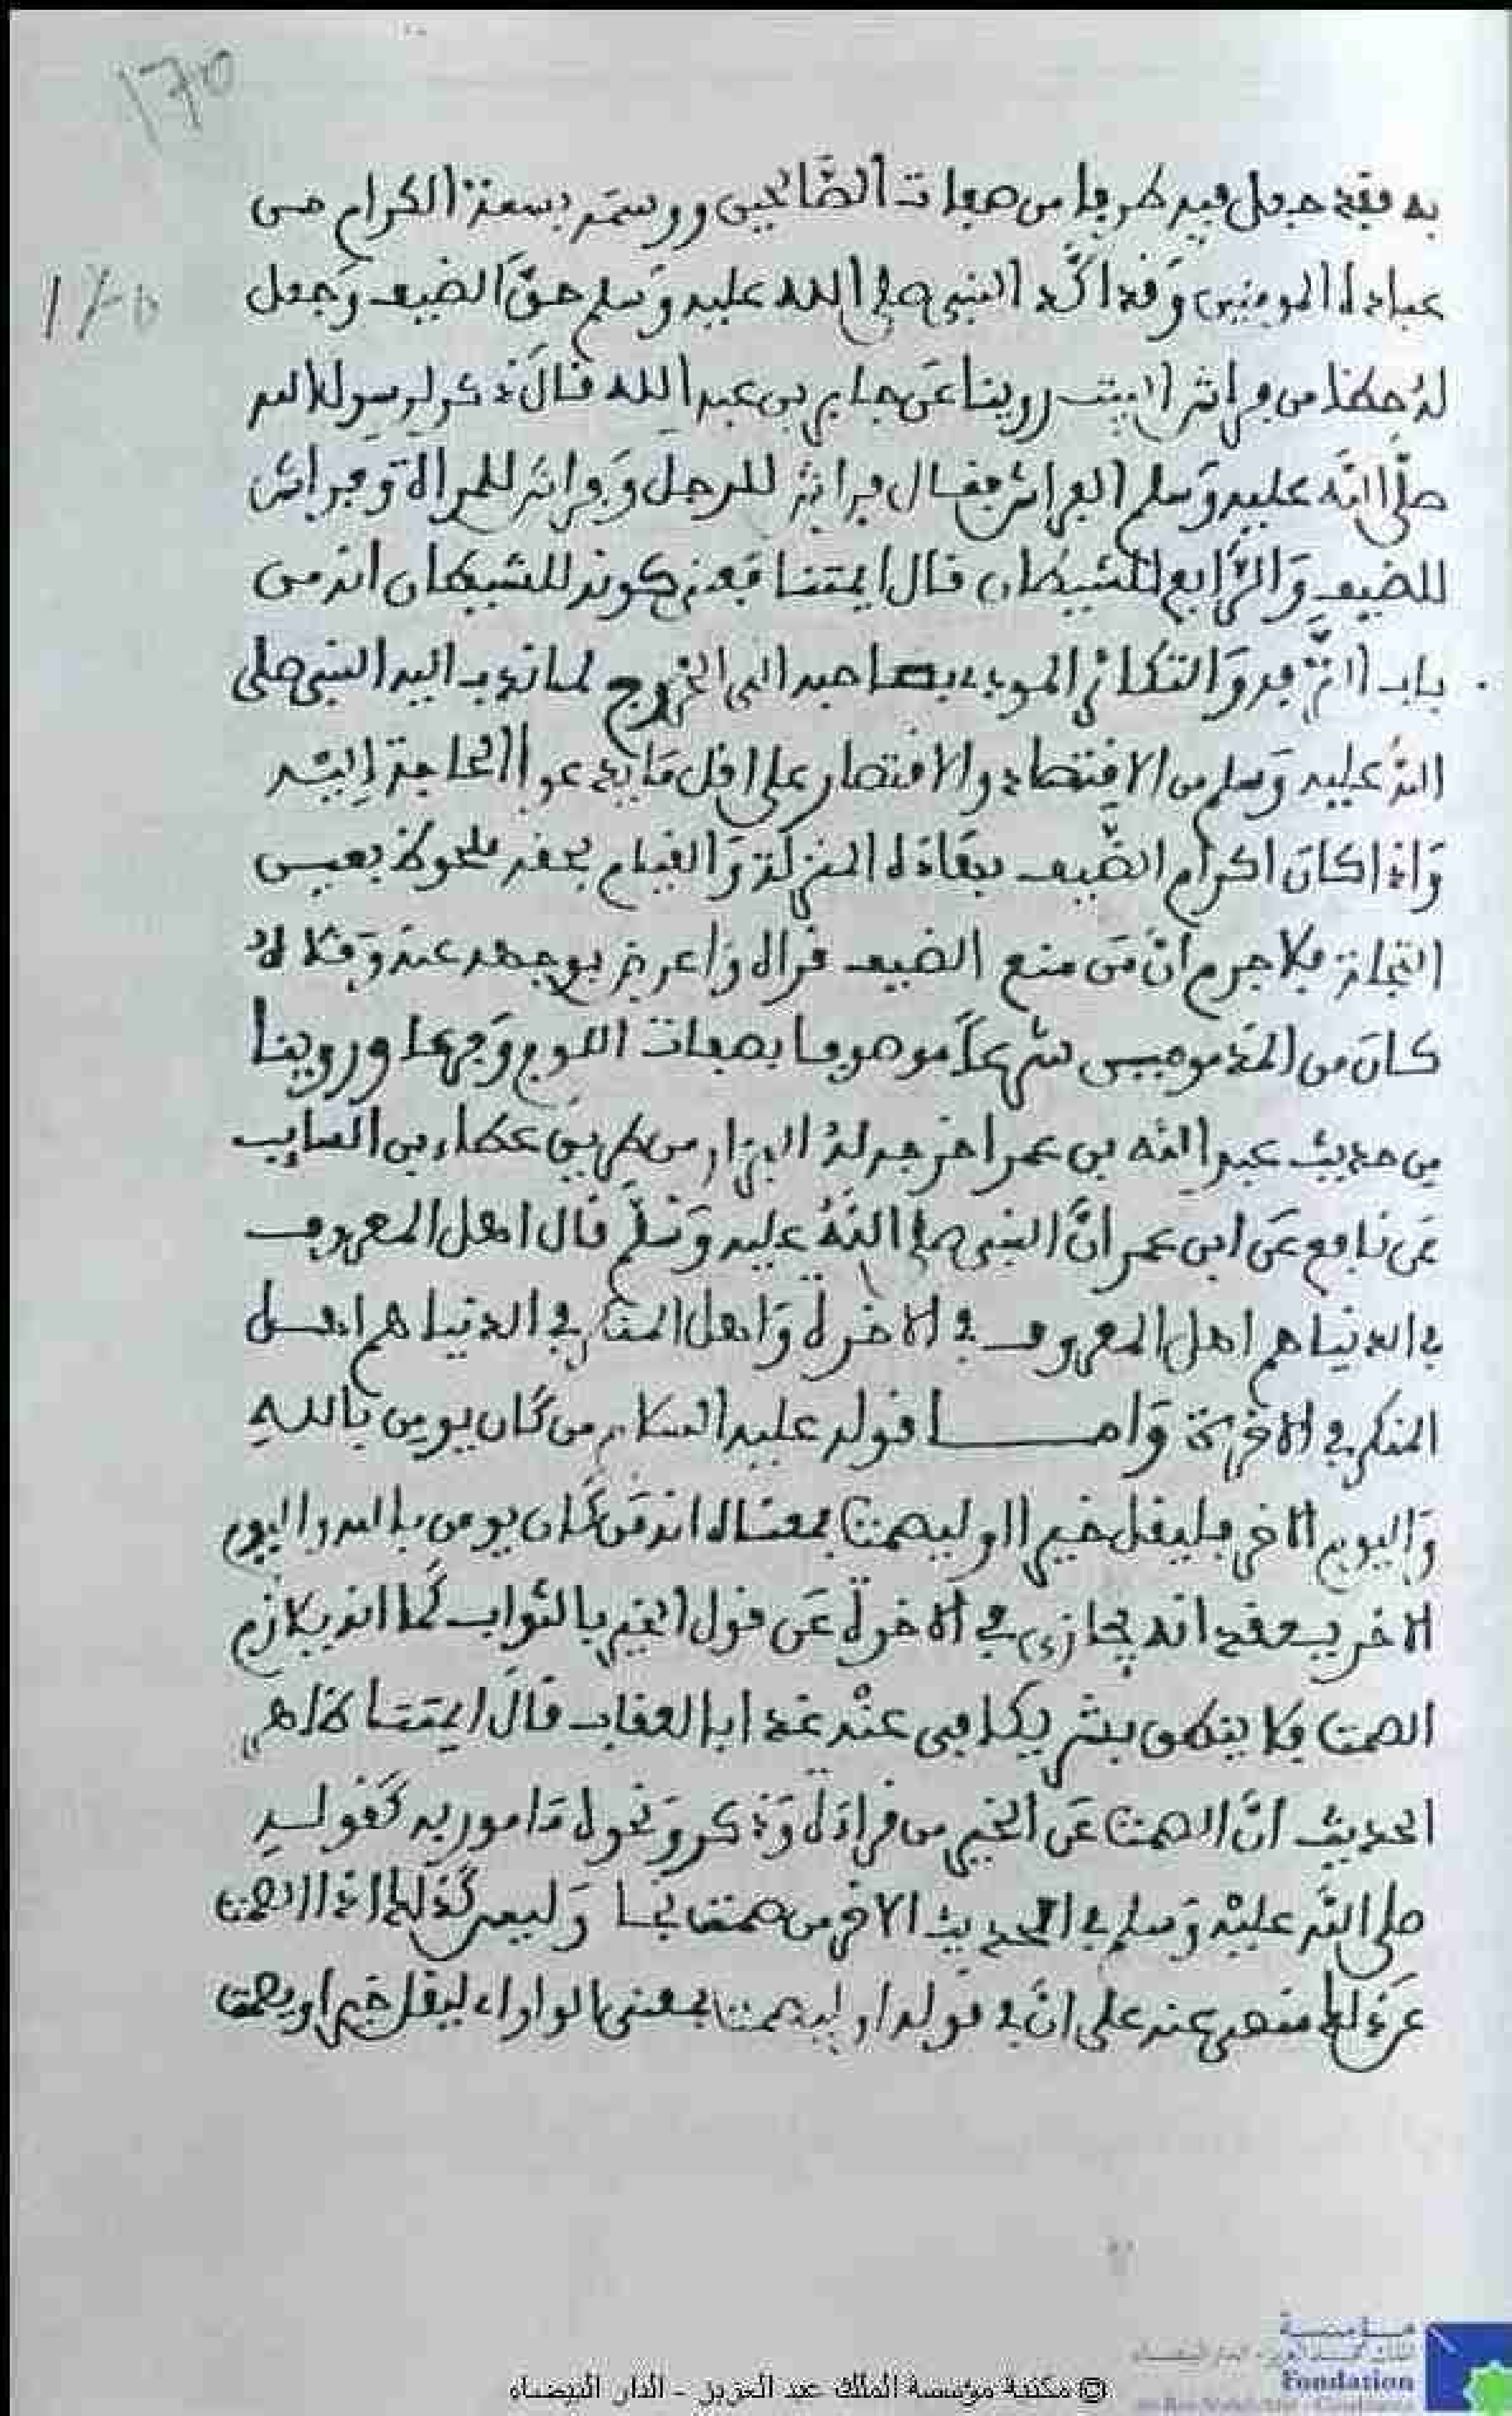 170
به فقد جعل فيه طرفا من صفات الصالحين ووسمه بسمة الكرام من
170
عباده المومنين وقد اكد النبي صلى الله عليه وسلم حق الضيف وجعل
له حظا من فراش البيت روينا عن جابر بن عبد الله قال ذكر لرسول الله
صلى الله عليه وسلم الفراش فقال فراش للرجل وفراش للمراة وفراش
للضيف والرابع للشيطان قال ايمتنا فمعنى كونه للشيطان انه من
باب الترفه والتكاثر المودي بصاحبه الى الخروج لما ندب اليه النبي صلى
الله عليه وسلم من الاقتصاد والاقتصار على اقل ما يدعوا الحاجة اليه
واذا كان اكرام الضيف بهاذه المنزلة والقيام بحقه ملحوظ بعين
التجلة فلا جرم ان من منع الضيف قراه واعرض بوجهه عنه وقلاه
كان من المذمومين شرعا موصوفا بصفات اللوم وجمعها وروينا
من حديث عبد الله بن عمر اخرجه له البزار من طريق عطاء بن السايب
عن نافع عن ابن عمر ان النبي صلى الله عليه وسلم قال اهل المعروف
في الدنيا هم اهل المعروف في الاخرة واهل المنكر في الدنيا هم اهل
المنكر في الاخرة واما قوله عليه السلام من كان يومن بالله
واليوم الاخر فليقل خيرا او ليصمت بمعناه انه من كان يومن بالله واليوم
الاخر يعتقد انه يجازى في الاخرة عن قول الخير بالثواب كما انه يلازم
الصمت ولا ينطق بشر يكافى عنه غدا بالعقاب قال ايمتنا ظاهر
الحديث ان الصمت عن الخير من قراءة وذكر ونحوه مامور به كقوله
صلى الله عليه وسلم في الحديث الاخر من صمت نجا وليس كذلك اذ الصمت
عن ذلك منهى عنه على ان في قوله او ليصمت بمعنى الواو اي ليقل خيرا ويصمت
© مكتبة مؤسسة الملك عبد العزيز - الدار البيضاء
مؤسسة
Fondation